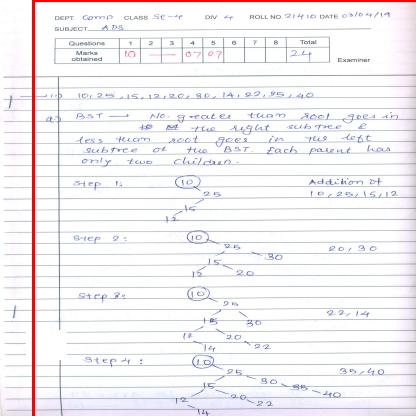 DEPT Comp CLASS SE-4 DIV 4 ROLL NO. 21410 DATE 03/04/19
SUBJECT ADS
Questions 1 2 3 4 5 6 7 8 Total
Marks obtained 10 07 07 24
Examiner
10, 25, 15, 12, 20, 30, 14, 22, 35, 40
a) BST → No. greater than root goes in
the right subtree &
less than root goes in the left
subtree of the BST. Each parent has
only two children.
Step 1: 10 Addition of
25 10, 25, 15, 12
15
12
Step 2: 10
25 20, 30
15 30
12 20
Step 3: 10
25 22, 14
15 30
12 20
14 22
Step 4: 10 35, 40
25
15 30 35 40
12 20 22
14